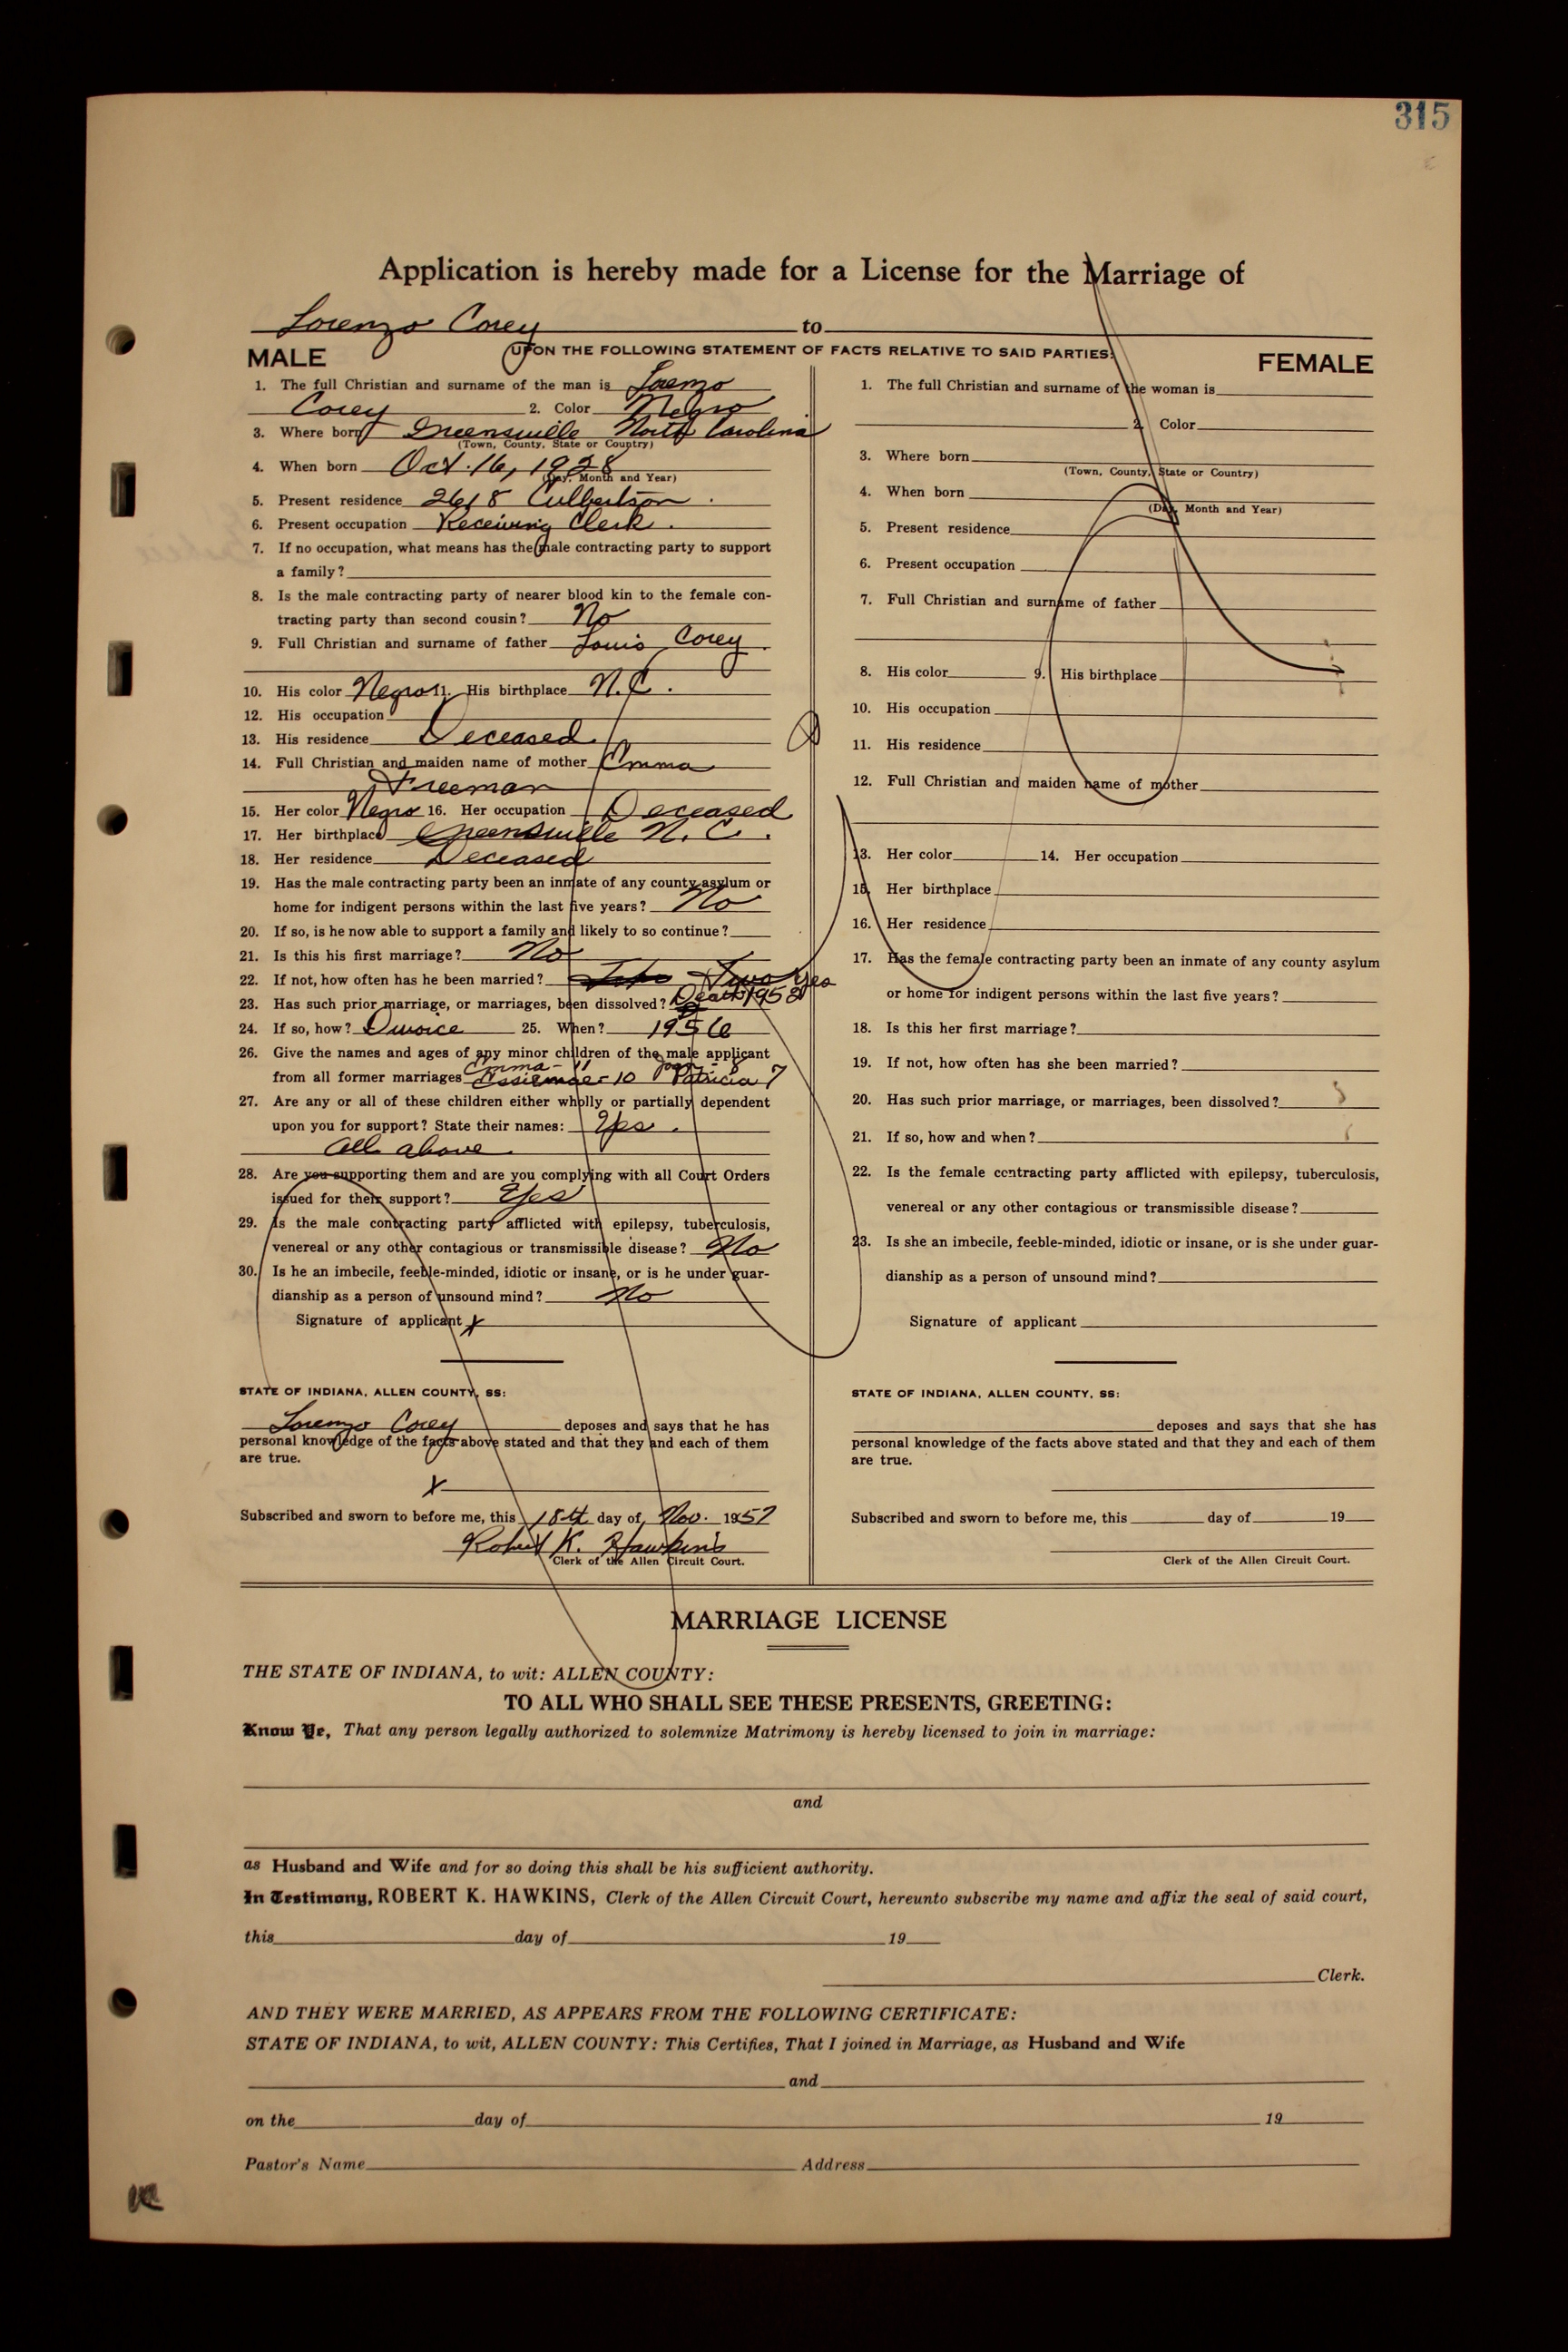 315
Application is hereby made for a License for the Marriage of
Lorenzo Corey to
MALE
UPON THE FOLLOWING STATEMENT OF FACTS RELATIVE TO SAID PARTIES:
FEMALE
1. The full Christian and surname of the man is Lorenzo
Corey 2. Color Negro
3. Where born Greensville North Carolina
(Town, County, State or Country)
4. When born Oct. 16, 1928
(Day, Month and Year)
5. Present residence 2618 Culbertson.
6. Present occupation Receiving Clerk.
7. If no occupation, what means has the male contracting party to support
a family?
8. Is the male contracting party of nearer blood kin to the female con-
tracting party than second cousin? No
9. Full Christian and surname of father Louis Corey.
10. His color Negro 11. His birthplace N.C.
12. His occupation
13. His residence Deceased.
14. Full Christian and maiden name of mother Emma
Freeman
15. Her color Negro 16. Her occupation Deceased
17. Her birthplace Greensville N.C.
18. Her residence Deceased
19. Has the male contracting party been an inmate of any county asylum or
home for indigent persons within the last five years? No
20. If so, is he now able to support a family and likely to so continue?
21. Is this his first marriage? No
22. If not, how often has he been married? Two Yes
23. Has such prior marriage, or marriages, been dissolved? Death 1958
24. If so, how? Divorce 25. When? 1956
26. Give the names and ages of any minor children of the male applicant
Emma - 11
from all former marriages Essiemae - 10 Patricia 7
27. Are any or all of these children either wholly or partially dependent
upon you for support? State their names: Yes.
All above.
28. Are you supporting them and are you complying with all Court Orders
issued for their support? Yes
29. Is the male contracting party afflicted with epilepsy, tuberculosis,
venereal or any other contagious or transmissible disease? No
30. Is he an imbecile, feeble-minded, idiotic or insane, or is he under guar-
dianship as a person of unsound mind? No
Signature of applicant X
STATE OF INDIANA, ALLEN COUNTY, SS:
Lorenzo Corey deposes and says that he has
personal knowledge of the facts above stated and that they and each of them
are true.
X
Subscribed and sworn to before me, this 18th day of Nov. 1957
Robert K. Hawkins
Clerk of the Allen Circuit Court.
1. The full Christian and surname of the woman is
2. Color
3. Where born
(Town, County, State or Country)
4. When born
(Day, Month and Year)
5. Present residence
6. Present occupation
7. Full Christian and surname of father
8. His color 9. His birthplace
10. His occupation
11. His residence
12. Full Christian and maiden name of mother
13. Her color 14. Her occupation
15. Her birthplace
16. Her residence
17. Has the female contracting party been an inmate of any county asylum
or home for indigent persons within the last five years?
18. Is this her first marriage?
19. If not, how often has she been married?
20. Has such prior marriage, or marriages, been dissolved?
21. If so, how and when?
22. Is the female contracting party afflicted with epilepsy, tuberculosis,
venereal or any other contagious or transmissible disease?
23. Is she an imbecile, feeble-minded, idiotic or insane, or is she under guar-
dianship as a person of unsound mind?
Signature of applicant
STATE OF INDIANA, ALLEN COUNTY, SS:
deposes and says that she has
personal knowledge of the facts above stated and that they and each of them
are true.
Subscribed and sworn to before me, this day of 19
Clerk of the Allen Circuit Court.
MARRIAGE LICENSE
THE STATE OF INDIANA, to wit: ALLEN COUNTY:
TO ALL WHO SHALL SEE THESE PRESENTS, GREETING:
Know Ye, That any person legally authorized to solemnize Matrimony is hereby licensed to join in marriage:
and
as Husband and Wife and for so doing this shall be his sufficient authority.
In Testimony, ROBERT K. HAWKINS, Clerk of the Allen Circuit Court, hereunto subscribe my name and affix the seal of said court,
this day of 19
Clerk.
AND THEY WERE MARRIED, AS APPEARS FROM THE FOLLOWING CERTIFICATE:
STATE OF INDIANA, to wit, ALLEN COUNTY: This Certifies, That I joined in Marriage, as Husband and Wife
and
on the day of 19
Pastor's Name Address